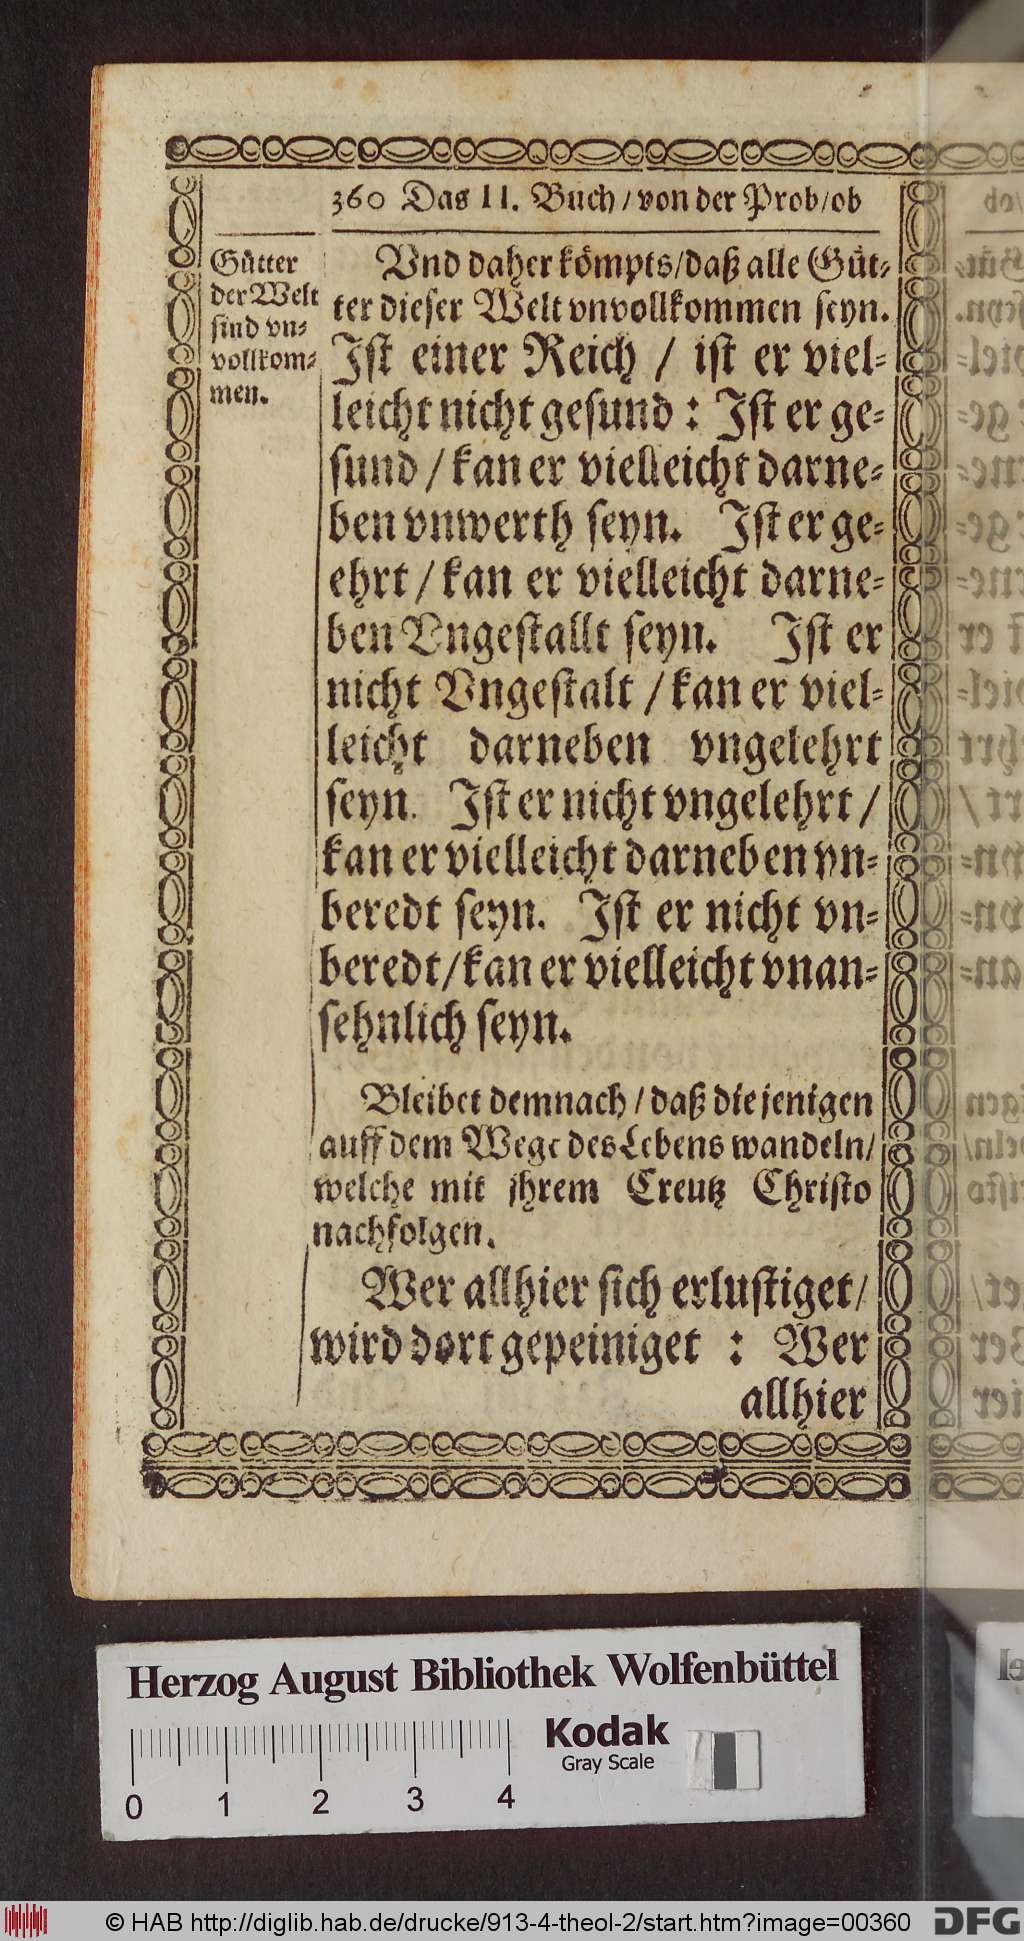 360 Das II. Buch / von der Prob / ob
Gütter
der Welt
sind vn⸗
vollkom⸗
men.
Vnd daher kömpts / daß alle Güt⸗
ter dieser Welt vnvollkommen seyn.
Ist einer Reich / ist er viel⸗
leicht nicht gesund : Ist er ge⸗
sund / kan er vielleicht darne⸗
ben vnwerth seyn. Ist er ge⸗
ehrt / kan er vielleicht darne⸗
ben Vngestallt seyn. Ist er
nicht Vngestalt / kan er viel⸗
leicht darneben vngelehrt
seyn. Ist er nicht vngelehrt /
kan er vielleicht darneben vn⸗
beredt seyn. Ist er nicht vn⸗
beredt / kan er vielleicht vnan⸗
sehnlich seyn.
Bleibet demnach / daß die jenigen
auff dem Wege des Lebens wandeln /
welche mit jhrem Creutz Christo
nachfolgen.
Wer allhier sich erlustiget /
wird dort gepeiniget : Wer
allhier
Herzog August Bibliothek Wolfenbüttel
Kodak
Gray Scale
0 1 2 3 4
© HAB http://diglib.hab.de/drucke/913-4-theol-2/start.htm?image=00360
DFG